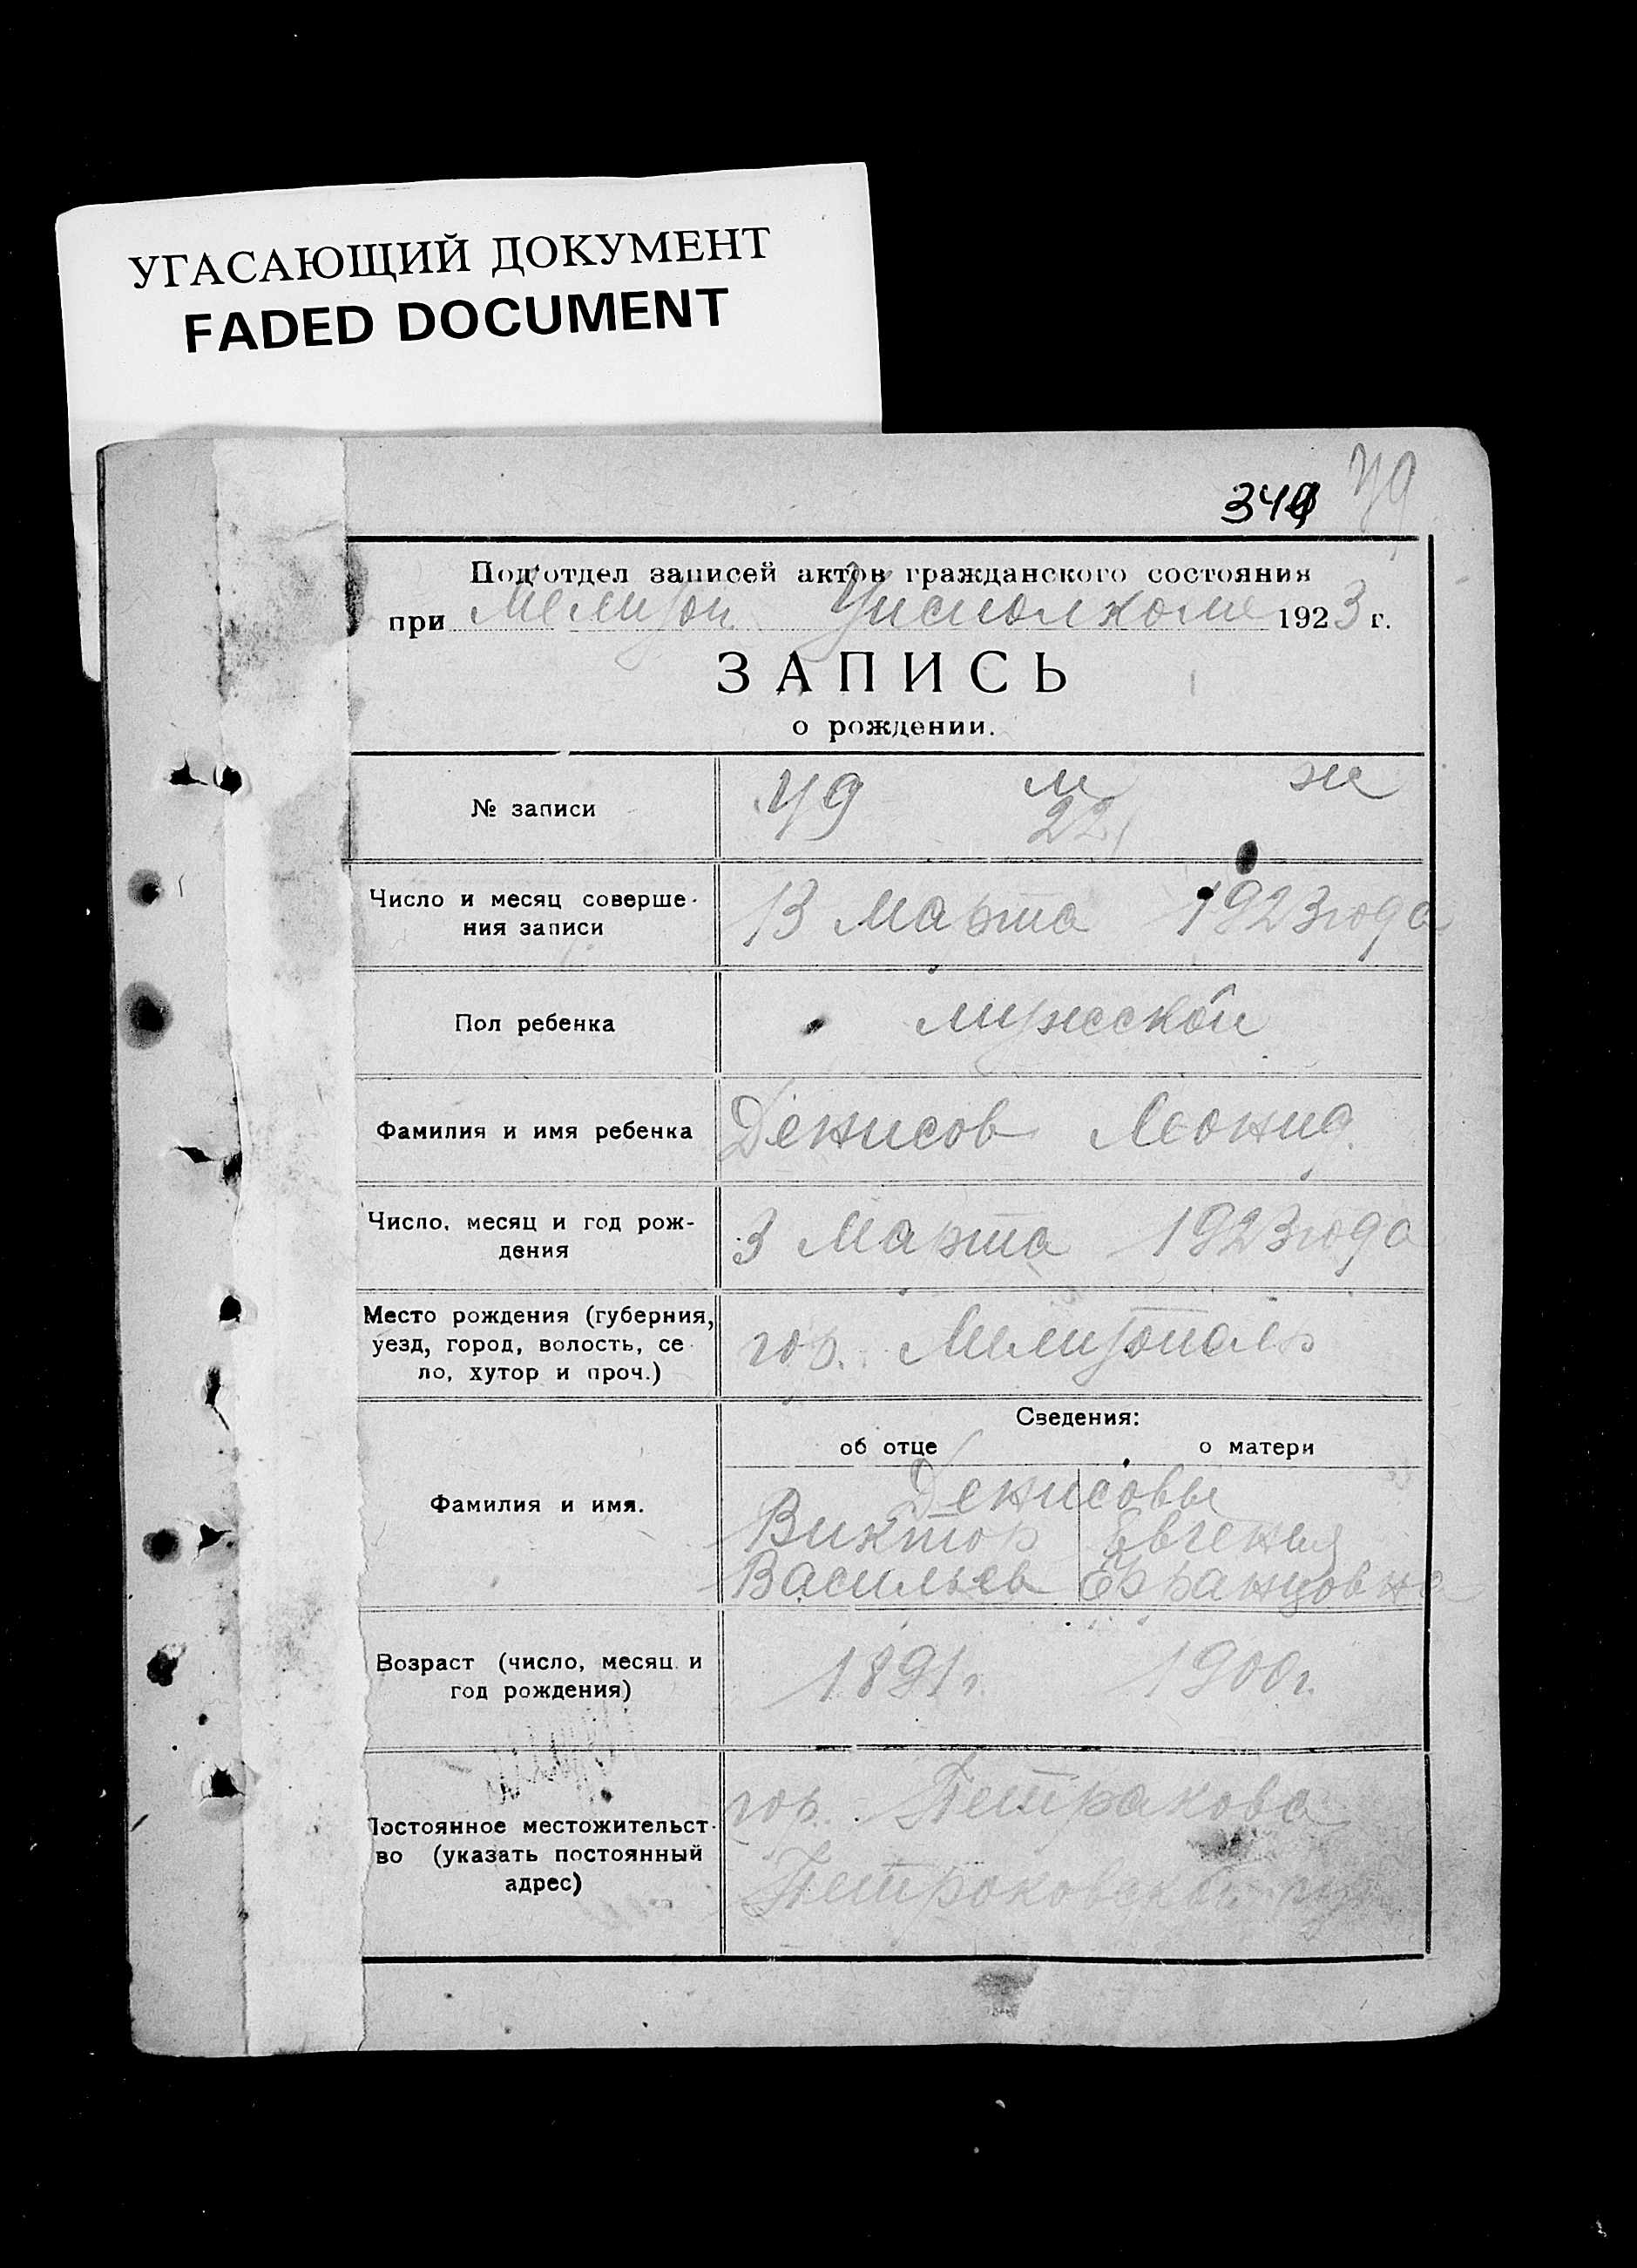 УГАСАЮЩИЙ ДОКУМЕНТ
FADED DOCUMENT
49
Под'отдел записей актов гражданского состояния
при Мелитоп. Уисполкоме 1923 г.
ЗАПИСЬ
о рождении.
№ записи 49 м ж
22
Число и месяц соверше-
ния записи
13 Марта 1923 года
Пол ребенка мужской
Фамилия и имя ребенка Денисов Леонид.
Число, месяц и год рож-
дения
3 Марта 1923 года
Место рождения (губерния,
уезд, город, волость, се
ло, хутор и проч.)
гор. Мелитополь
Сведения:
об отце о матери
Фамилия и имя.
Денисовы
Виктор Евгения
Васильев Францовна
Возраст (число, месяц и
год рождения)
1891 г. 1900 г.
Постоянное местожительст-
во (указать постоянный
адрес)
гор. Петракова
Петроковской губ